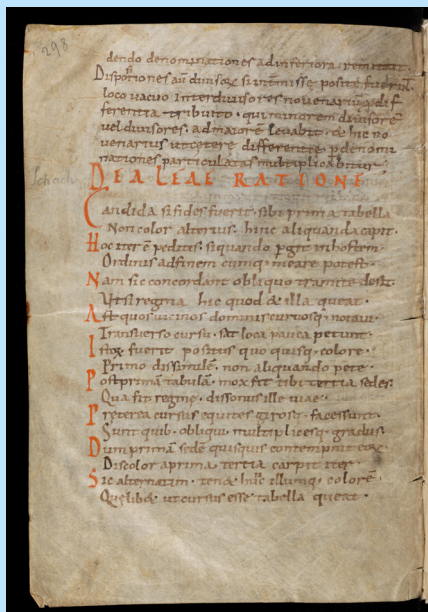 298
dendo denominationes ad inferiora
Disptiones aut divisoꝝ si intmisse posite fuerint
loco vacuo inter divisores novenariu p dif
ferentia tribuito. qui minorem divisore
vel divisores. ad maiore levabit. & hic no
venarius ut cetere differentie p denomi
nationes particulatas multiplicabitur
Schach
DE ALEAE RATIONE
Candida si fides fuerit. sibi prima tabella
Non color alterius. hinc aliquanda capit.
Hoc iter e pedites. si quando pgit in hostem.
Ordinis ad finem cumq. meare potest.
Nam sic concordant obliquo tramite desit.
Ut si regnia hic quod & illa queat.
Ast quos vicinos dominis cursusq. notavi.
Transverso cursu. sat loca pauca petunt.
Istoꝝ fuerit positus quo quisq. colore.
Primo dissimile. non aliquando pete.
Post prima tabula. mox fit tibi tertia sedes.
Qua fit regine. dissonus ille viae.
Preterea cursus equites girosq. facessunt.
Sunt quib. obliqui. multiplicesq. gradus.
Dum prima sede quisquis contempnit eoꝝ.
Discolor a prima. tertia carpit iter
Sic alternatim. ten& hunc illumq. colore.
Queslib& ut cursus esse tabella queat.